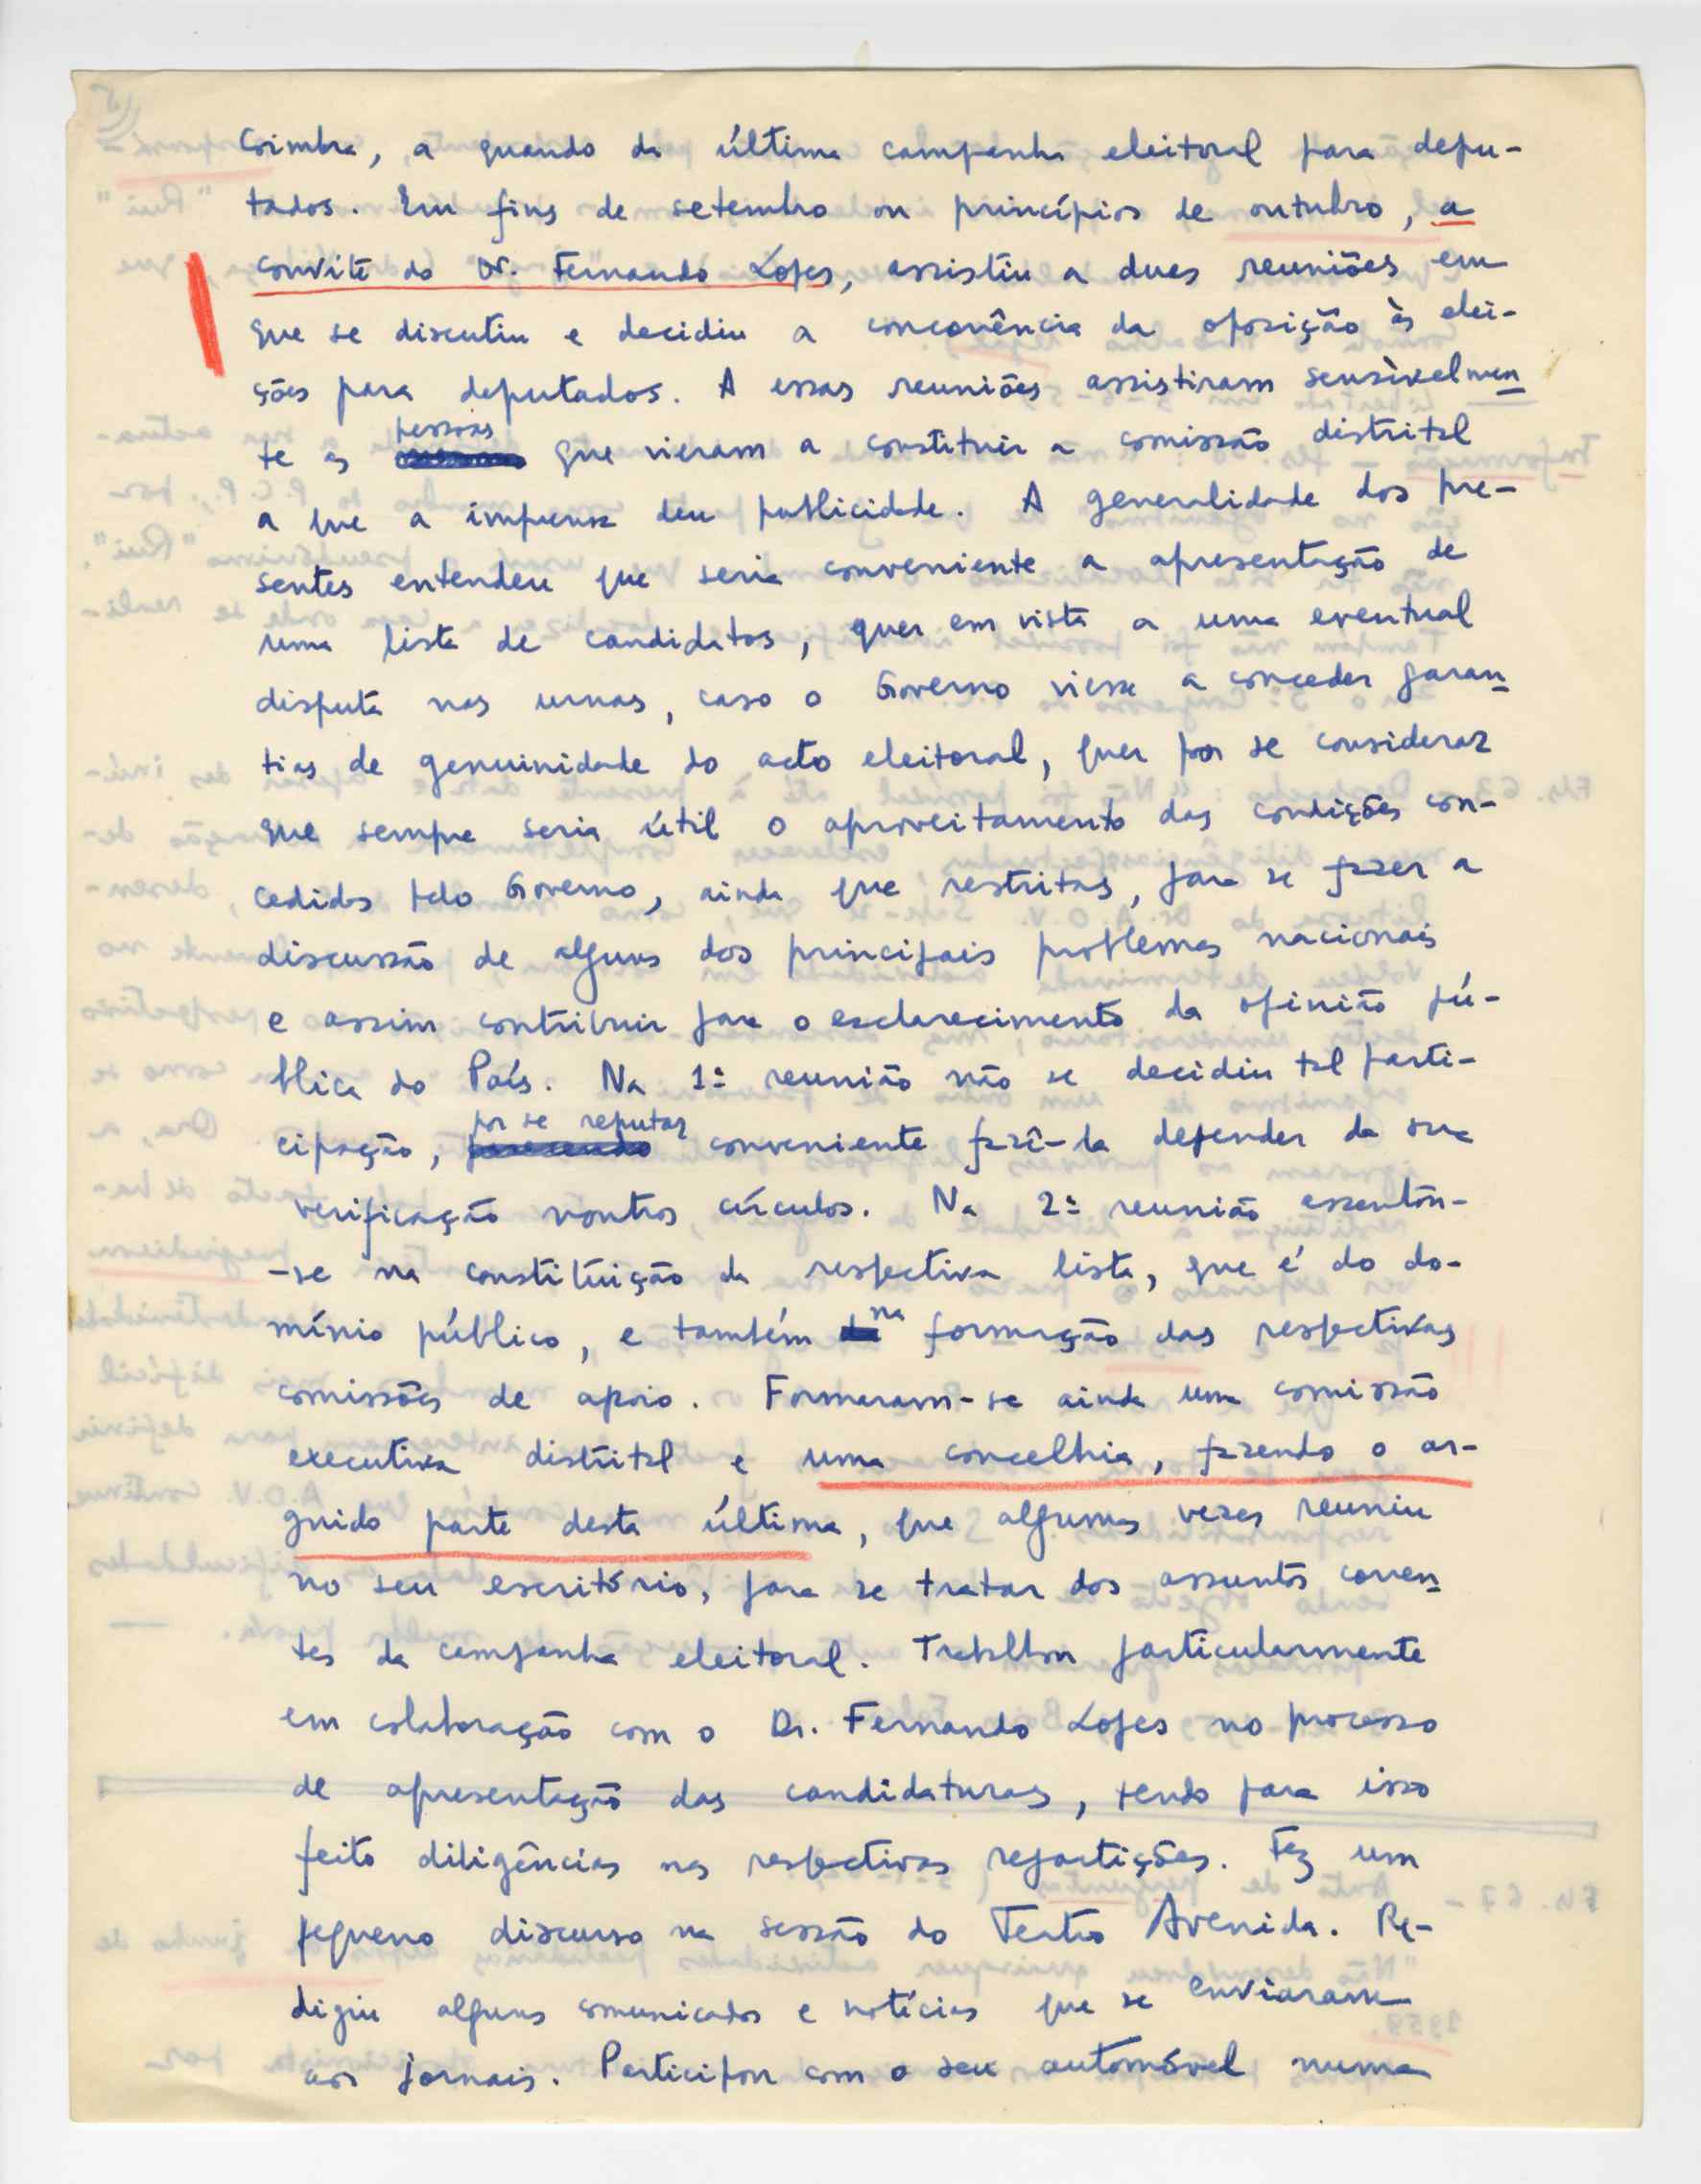 Coimbra, a quando da última campanha eleitoral para depu-
tados. Em fins de setembro ou princípios de outubro, a
convite do Dr. Fernando Lopes, assistiu a duas reuniões em
que se discutiu e decidiu a concorrência da oposição às elei-
ções para deputados. A essas reuniões assistiram sensìvelmen
te as pessoas que vieram a constituir a comissão distrital
a que a imprensa deu publicidade. A generalidade dos pre-
sentes entendeu que seria conveniente a apresentação de
uma lista de candidatos, quer em vista a uma eventual
disputa nas urnas, caso o Governo viesse a conceder garan
tias de genuinidade do acto eleitoral, quer por se considerar
que sempre seria útil o aproveitamento das condições con-
cedidas pelo Governo, ainda que restritas, para se fazer a
discussão de alguns dos principais problemas nacionais
e assim contribuir para o esclarecimento da opinião pú-
blica do País. Na 1ª reunião não se decidiu tal parti-
cipação, por se reputar conveniente fazê-la depender da sua
verificação noutros círculos. Na 2ª reunião assentou-
-se na constituição da respectiva lista, que é do do-
mínio público, e também na formação das respectivas
comissões de apoio. Formaram-se ainda uma comissão
executiva distrital e uma concelhia, fazendo o ar-
guido parte desta última, que algumas vezes reuniu
no seu escritório, para se tratar dos assuntos corren
tes da campanha eleitoral. Trabalhou particularmente
em colaboração com o Dr. Fernando Lopes no processo
de apresentação das candidaturas, tendo para isso
feito diligências nas respectivas repartições. Fez um
pequeno discurso na sessão do Teatro Avenida. Re-
digiu alguns comunicados e notícias que se enviaram
aos jornais. Participou com o seu automóvel numa